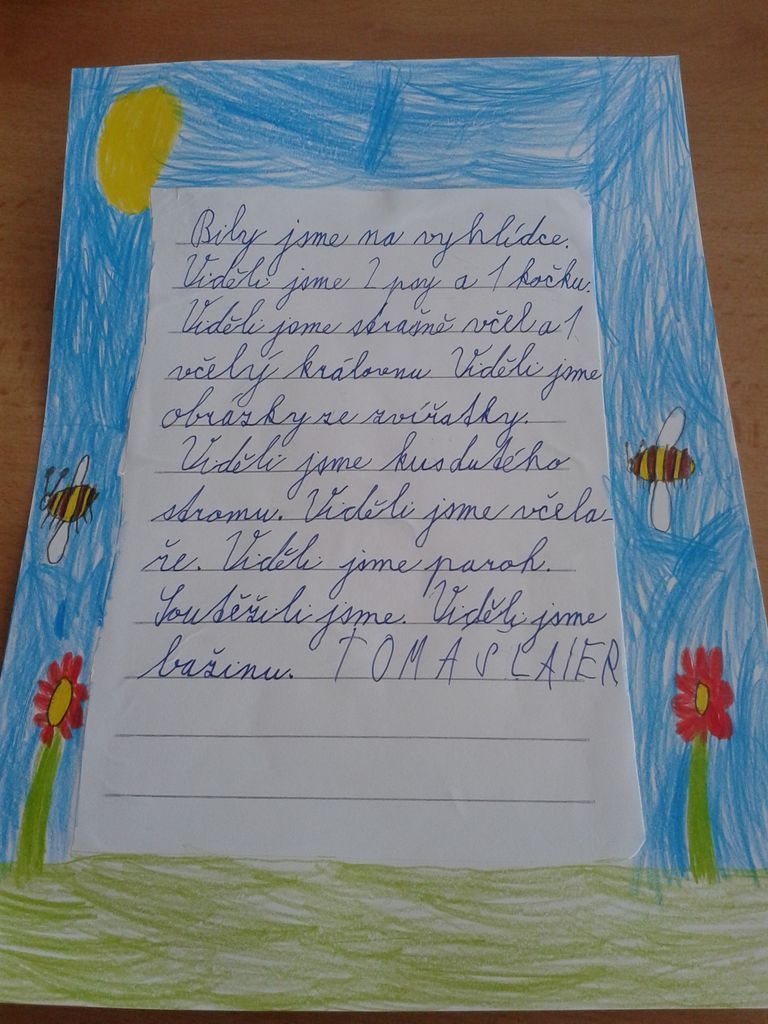 Bily jsme na vyhlídce.
Viděli jsme 2 psy a 1 kočku.
Viděli jsme strašně včel a 1
včelý královnu Viděli jsme
obrázky ze zvířatky.
Viděli jsme kus dutého
stromu. Viděli jsme včela-
ře. Viděli jsme paroh.
Soutěžili jsme. Viděli jsme
bažinu. TOMÁŠ LAIER